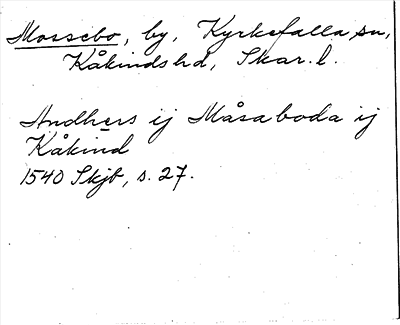 Mossebo, by, Kyrkefalla sn,
Kåkinds hd, Skar. l.
Andhers ij Måsaboda ij
Kåkind
1540 Skjb, s. 27.